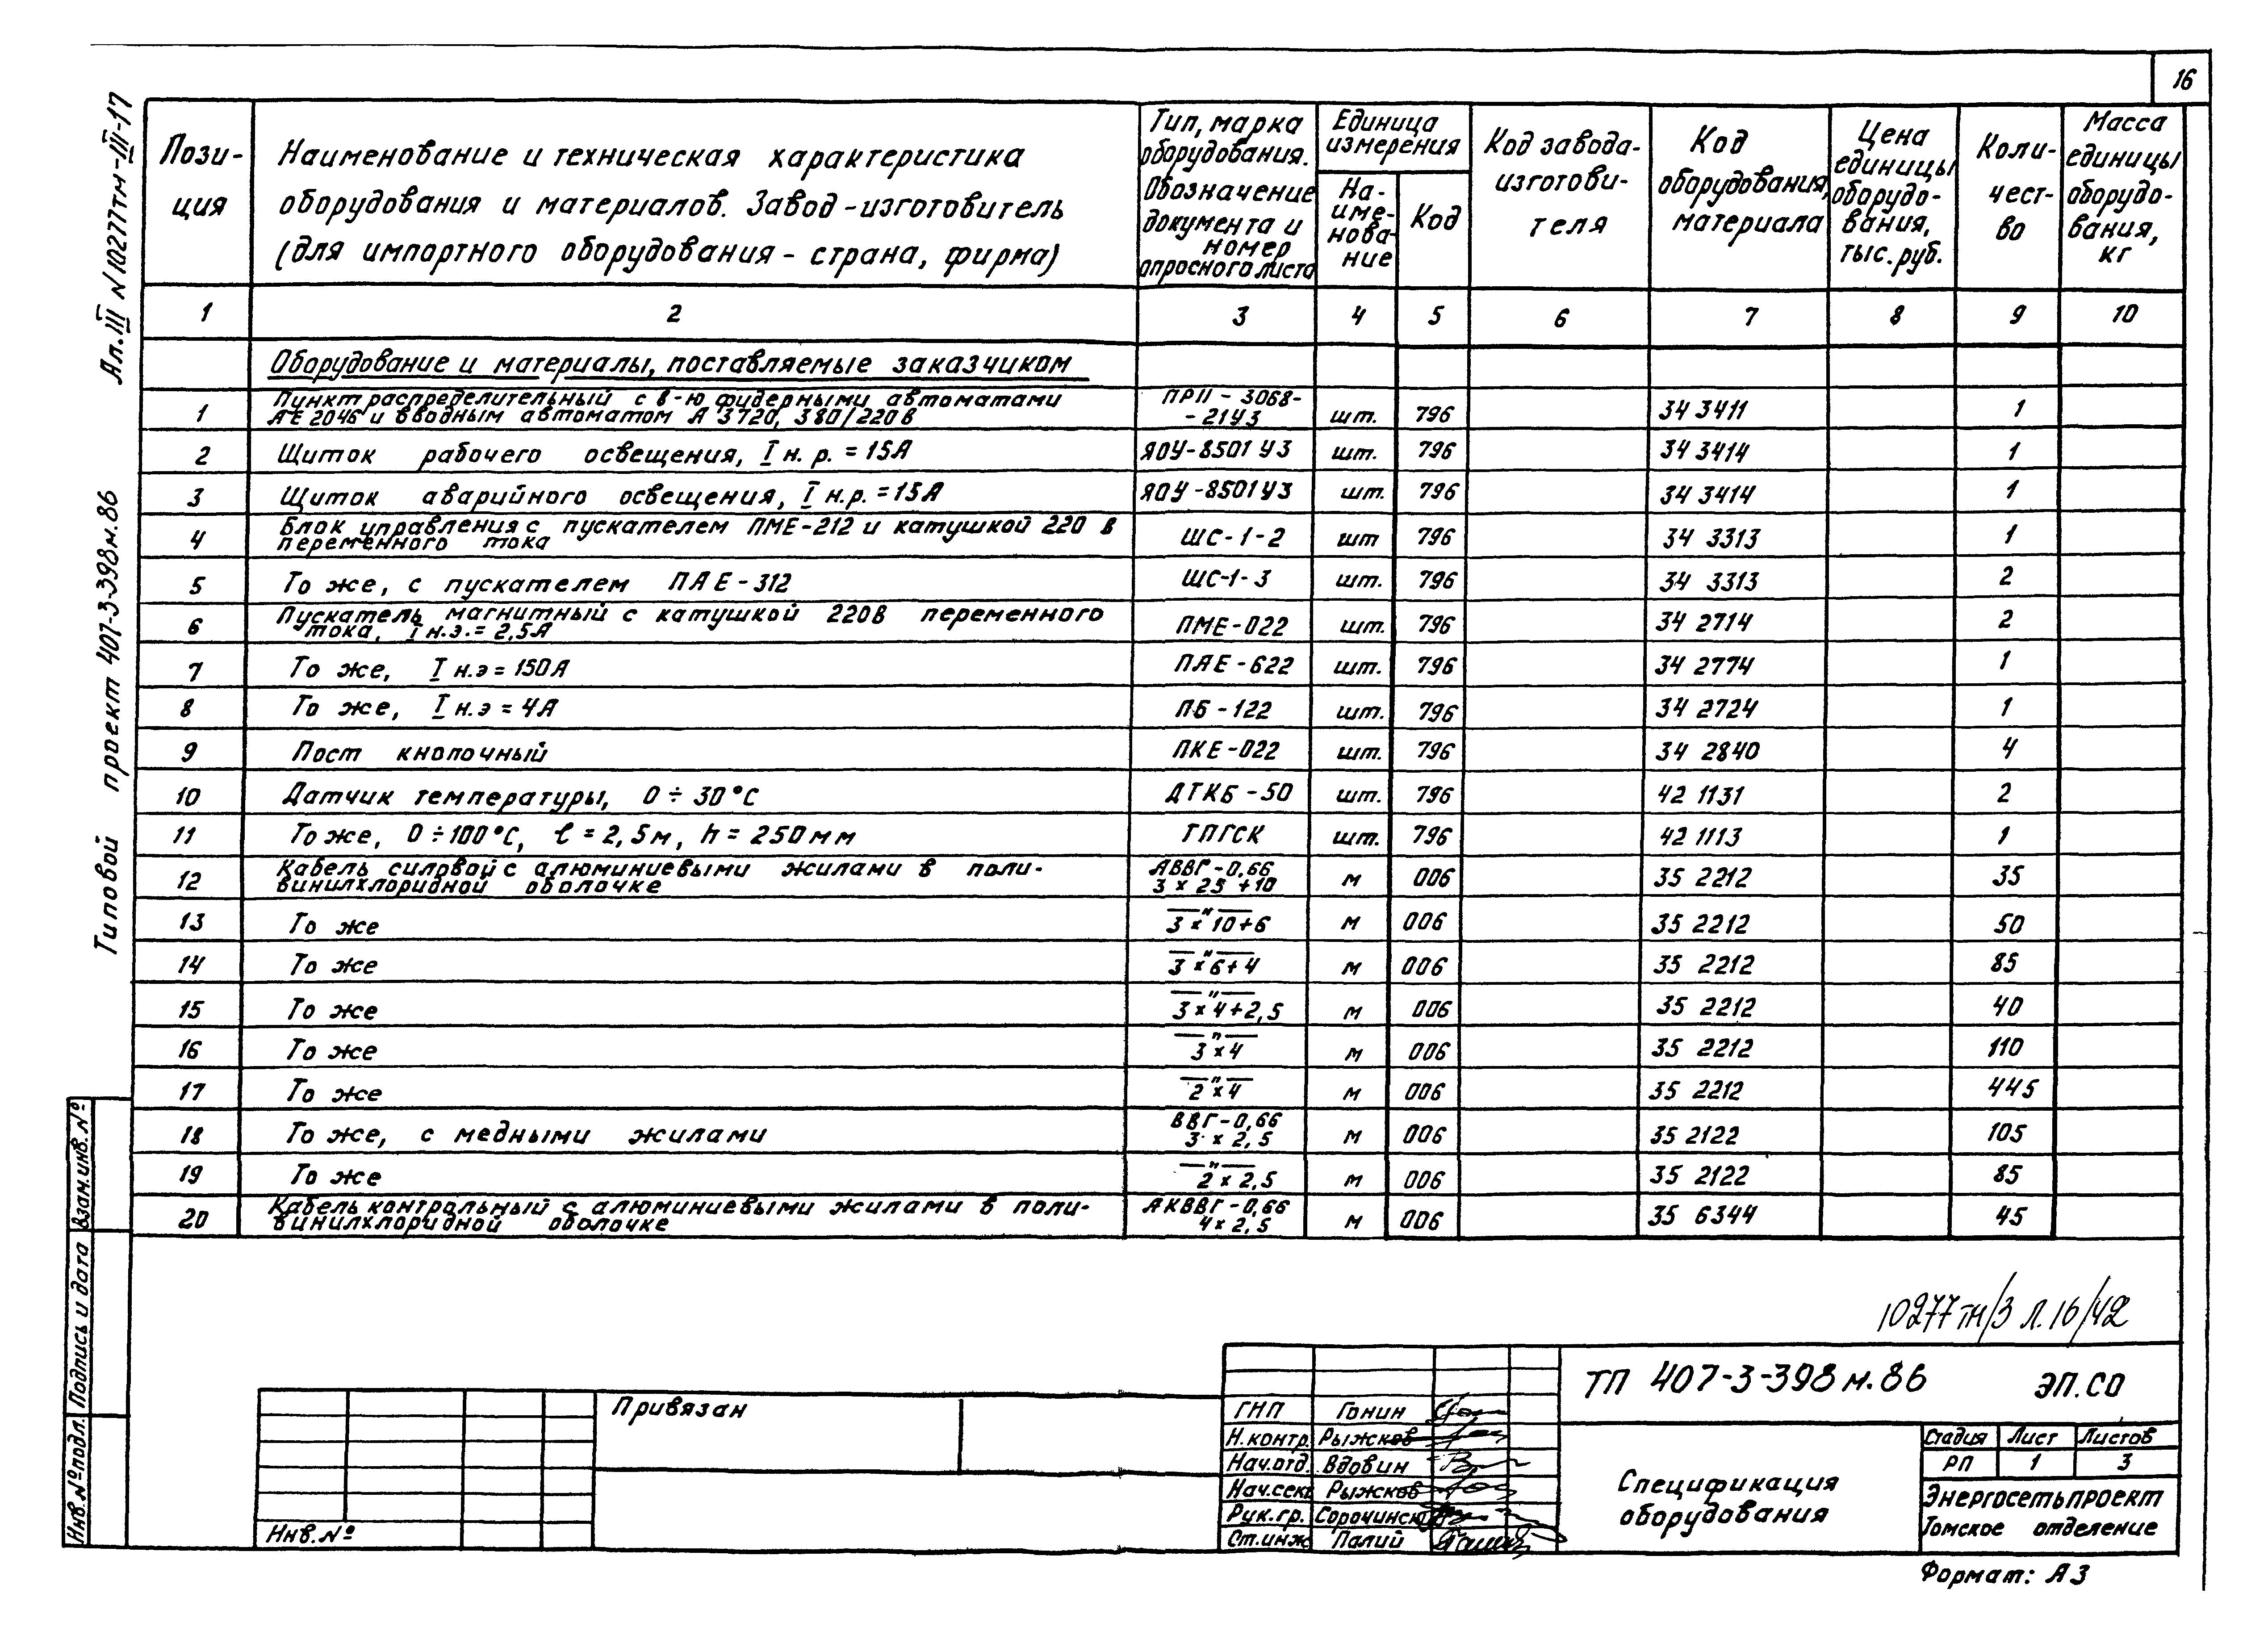 16
Ал. III N10277тм-III-17
Типовой проект 407-3-398м.86
Пози-
ция
Наименование и техническая характеристика
оборудования и материалов. Завод-изготовитель
(для импортного оборудования - страна, фирма)
Тип, марка
оборудования.
Обозначение
документа и
номер
опросного листа
Единица
измерения
На-
име-
нова-
ние
Код
Код завода-
изготови-
теля
Код
оборудования,
материала
Цена
единицы
оборудо-
вания,
тыс. руб.
Коли-
чест-
во
Масса
единицы
оборудо-
вания,
кг
1 2 3 4 5 6 7 8 9 10
Оборудование и материалы, поставляемые заказчиком
1 Пункт распределительный с 8-ю фидерными автоматами
АЕ 2046 и вводным автоматом А 3720, 380/220 в
ПР11-3068-
-21У3 шт. 796 34 3411 1
2 Щиток рабочего освещения, I н. р. = 15А ЯОУ-8501 У3 шт. 796 34 3414 1
3 Щиток аварийного освещения, I н.р. = 15А ЯОУ-8501 У3 шт. 796 34 3414 1
4 Блок управления с пускателем ПМЕ-212 и катушкой 220 в
переменного тока ШС-1-2 шт 796 34 3313 1
5 То же, с пускателем ПАЕ-312 ШС-1-3 шт. 796 34 3313 2
6 Пускатель магнитный с катушкой 220в переменного
тока, I н.э. = 2,5А ПМЕ-022 шт. 796 34 2714 2
7 То же, I н.э = 150А ПАЕ-622 шт. 796 34 2774 1
8 То же, I н.э = 4А ПБ-122 шт. 796 34 2724 1
9 Пост кнопочный ПКЕ-022 шт. 796 34 2840 4
10 Датчик температуры, 0 ÷ 30°С ДТКБ-50 шт. 796 42 1131 2
11 То же, 0 ÷ 100°С, ℓ = 2,5м, h = 250мм ТПГСК шт. 796 42 1113 1
12 Кабель силовой с алюминиевыми жилами в поли-
винилхлоридной оболочке
АВВГ-0,66
3 х 25 + 10 м 006 35 2212 35
13 То же —"— 3 х 10+6 м 006 35 2212 50
14 То же —"— 3 х 6+4 м 006 35 2212 85
15 То же —"— 3 х 4+2,5 м 006 35 2212 40
16 То же —"— 3 х 4 м 006 35 2212 110
17 То же —"— 2 х 4 м 006 35 2212 445
18 То же, с медными жилами ВВГ-0,66
3 х 2,5 м 006 35 2122 105
19 То же —"— 2 х 2,5 м 006 35 2122 85
20 Кабель контрольный с алюминиевыми жилами в поли-
винилхлоридной оболочке
АКВВГ-0,66
4 х 2,5 м 006 35 6344 45
10277тм/3 л.16/42
Взам.инв.№
Подпись и дата
Инв.№подл.
Привязан
Инв.№
ГИП Гонин
Н.контр. Рыжков
Нач.отд. Вдовин
Нач.сек Рыжков
Рук.гр. Сорочинс
Ст.инж Палий
ТП 407-3-398м.86 ЭП.СО
Спецификация
оборудования
Стадия Лист Листов
РП 1 3
Энергосетьпроект
Томское отделение
Формат: А3